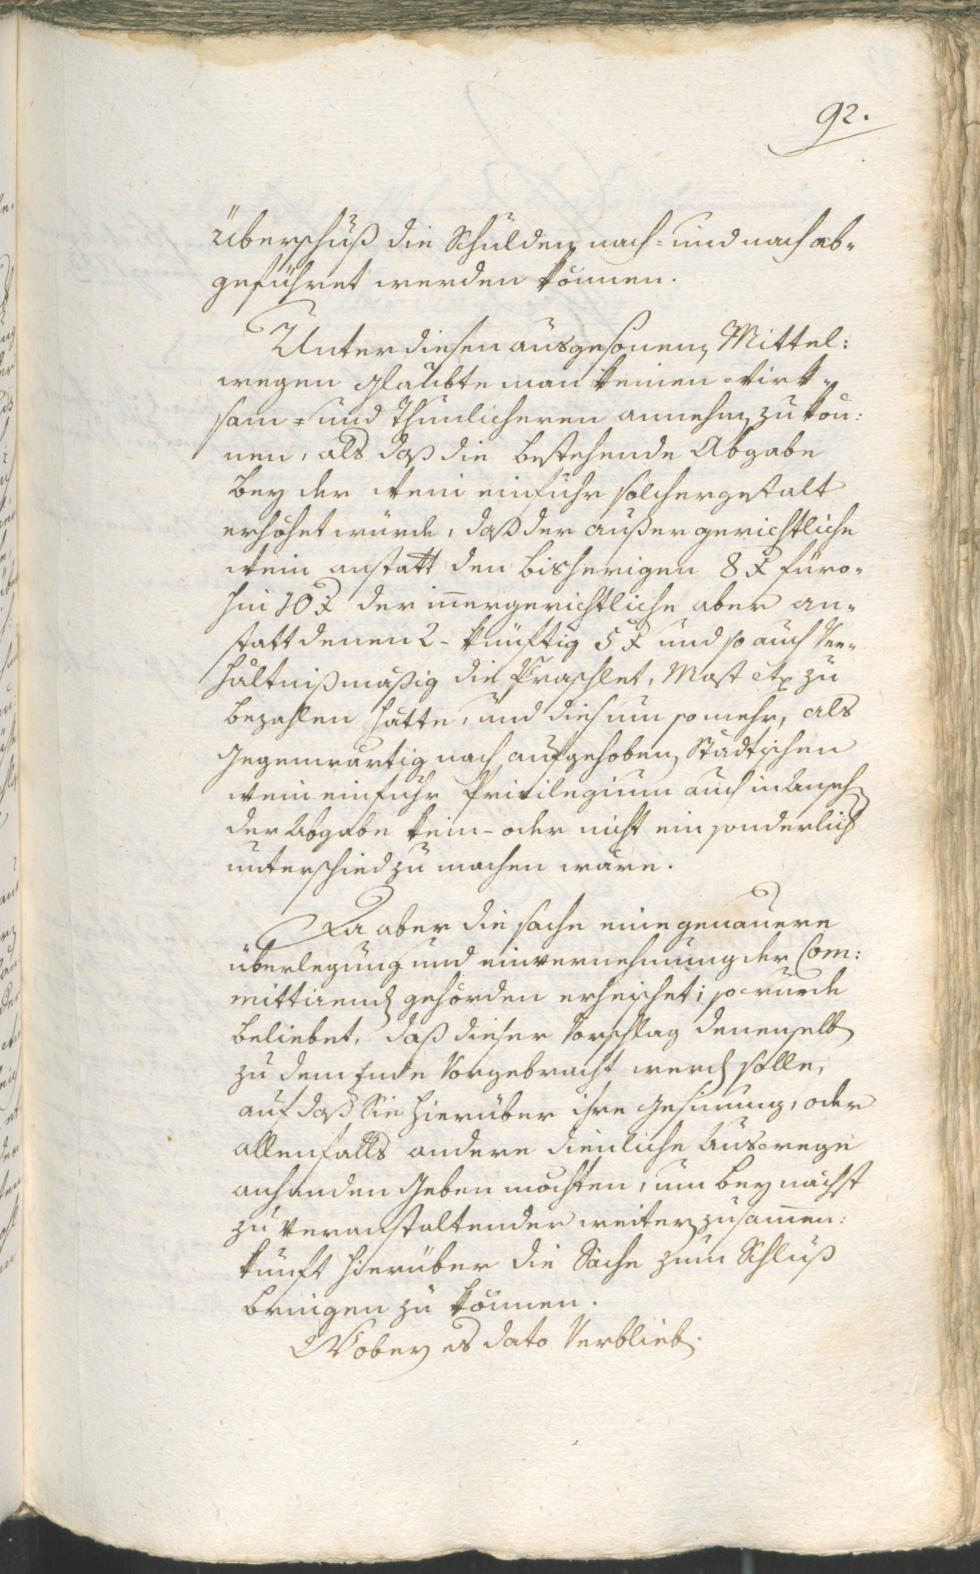 92.
Überschuß die Schulden nach- und nach ab-
geführet werden können.
Unter diesen ausgesonenen Mittel:
wegen glaubte man keinen wirk-
sam- und thunlicheren annehmen zu kön:
nen, als daß die bestehende Abgabe
bey der Wein einfuhr solchergestalt
erhöhet würde, daß der außergerichtliche
Wein anstatt den bisherigen 8 x füro-
hin 10 x der innergerichtliche aber an-
statt denen 2- künftig 5 x und so auch Ver-
hältnißmäßig die Praschlet, Most etc zu
bezahlen hätte, und dies um so mehr, als
Gegenwärtig nach aufgehoben Städtischen
Wein einfuhr Privilegium auch in Anseh
der Abgabe kein- oder nicht ein sonderlich
unterschied zu machen wäre.
Da aber die sache eine genauere
überlegung und einvernehmung der Com:
mittirend gehörden erheischet; so wurde
beliebet, daß dieser Vorschlag denenselb
zu dem Ende Vorgebracht werd solle,
auf daß Sie hierüber ihre Gesinnung, oder
allenfalls andere dienliche Auswege
anhanden Geben möchten, um bey nächst
zu veranstaltender weiter zusammen:
kunft hierüber die Sache zum Schluß
bringen zu können.
Wobey es dato Verblieb.